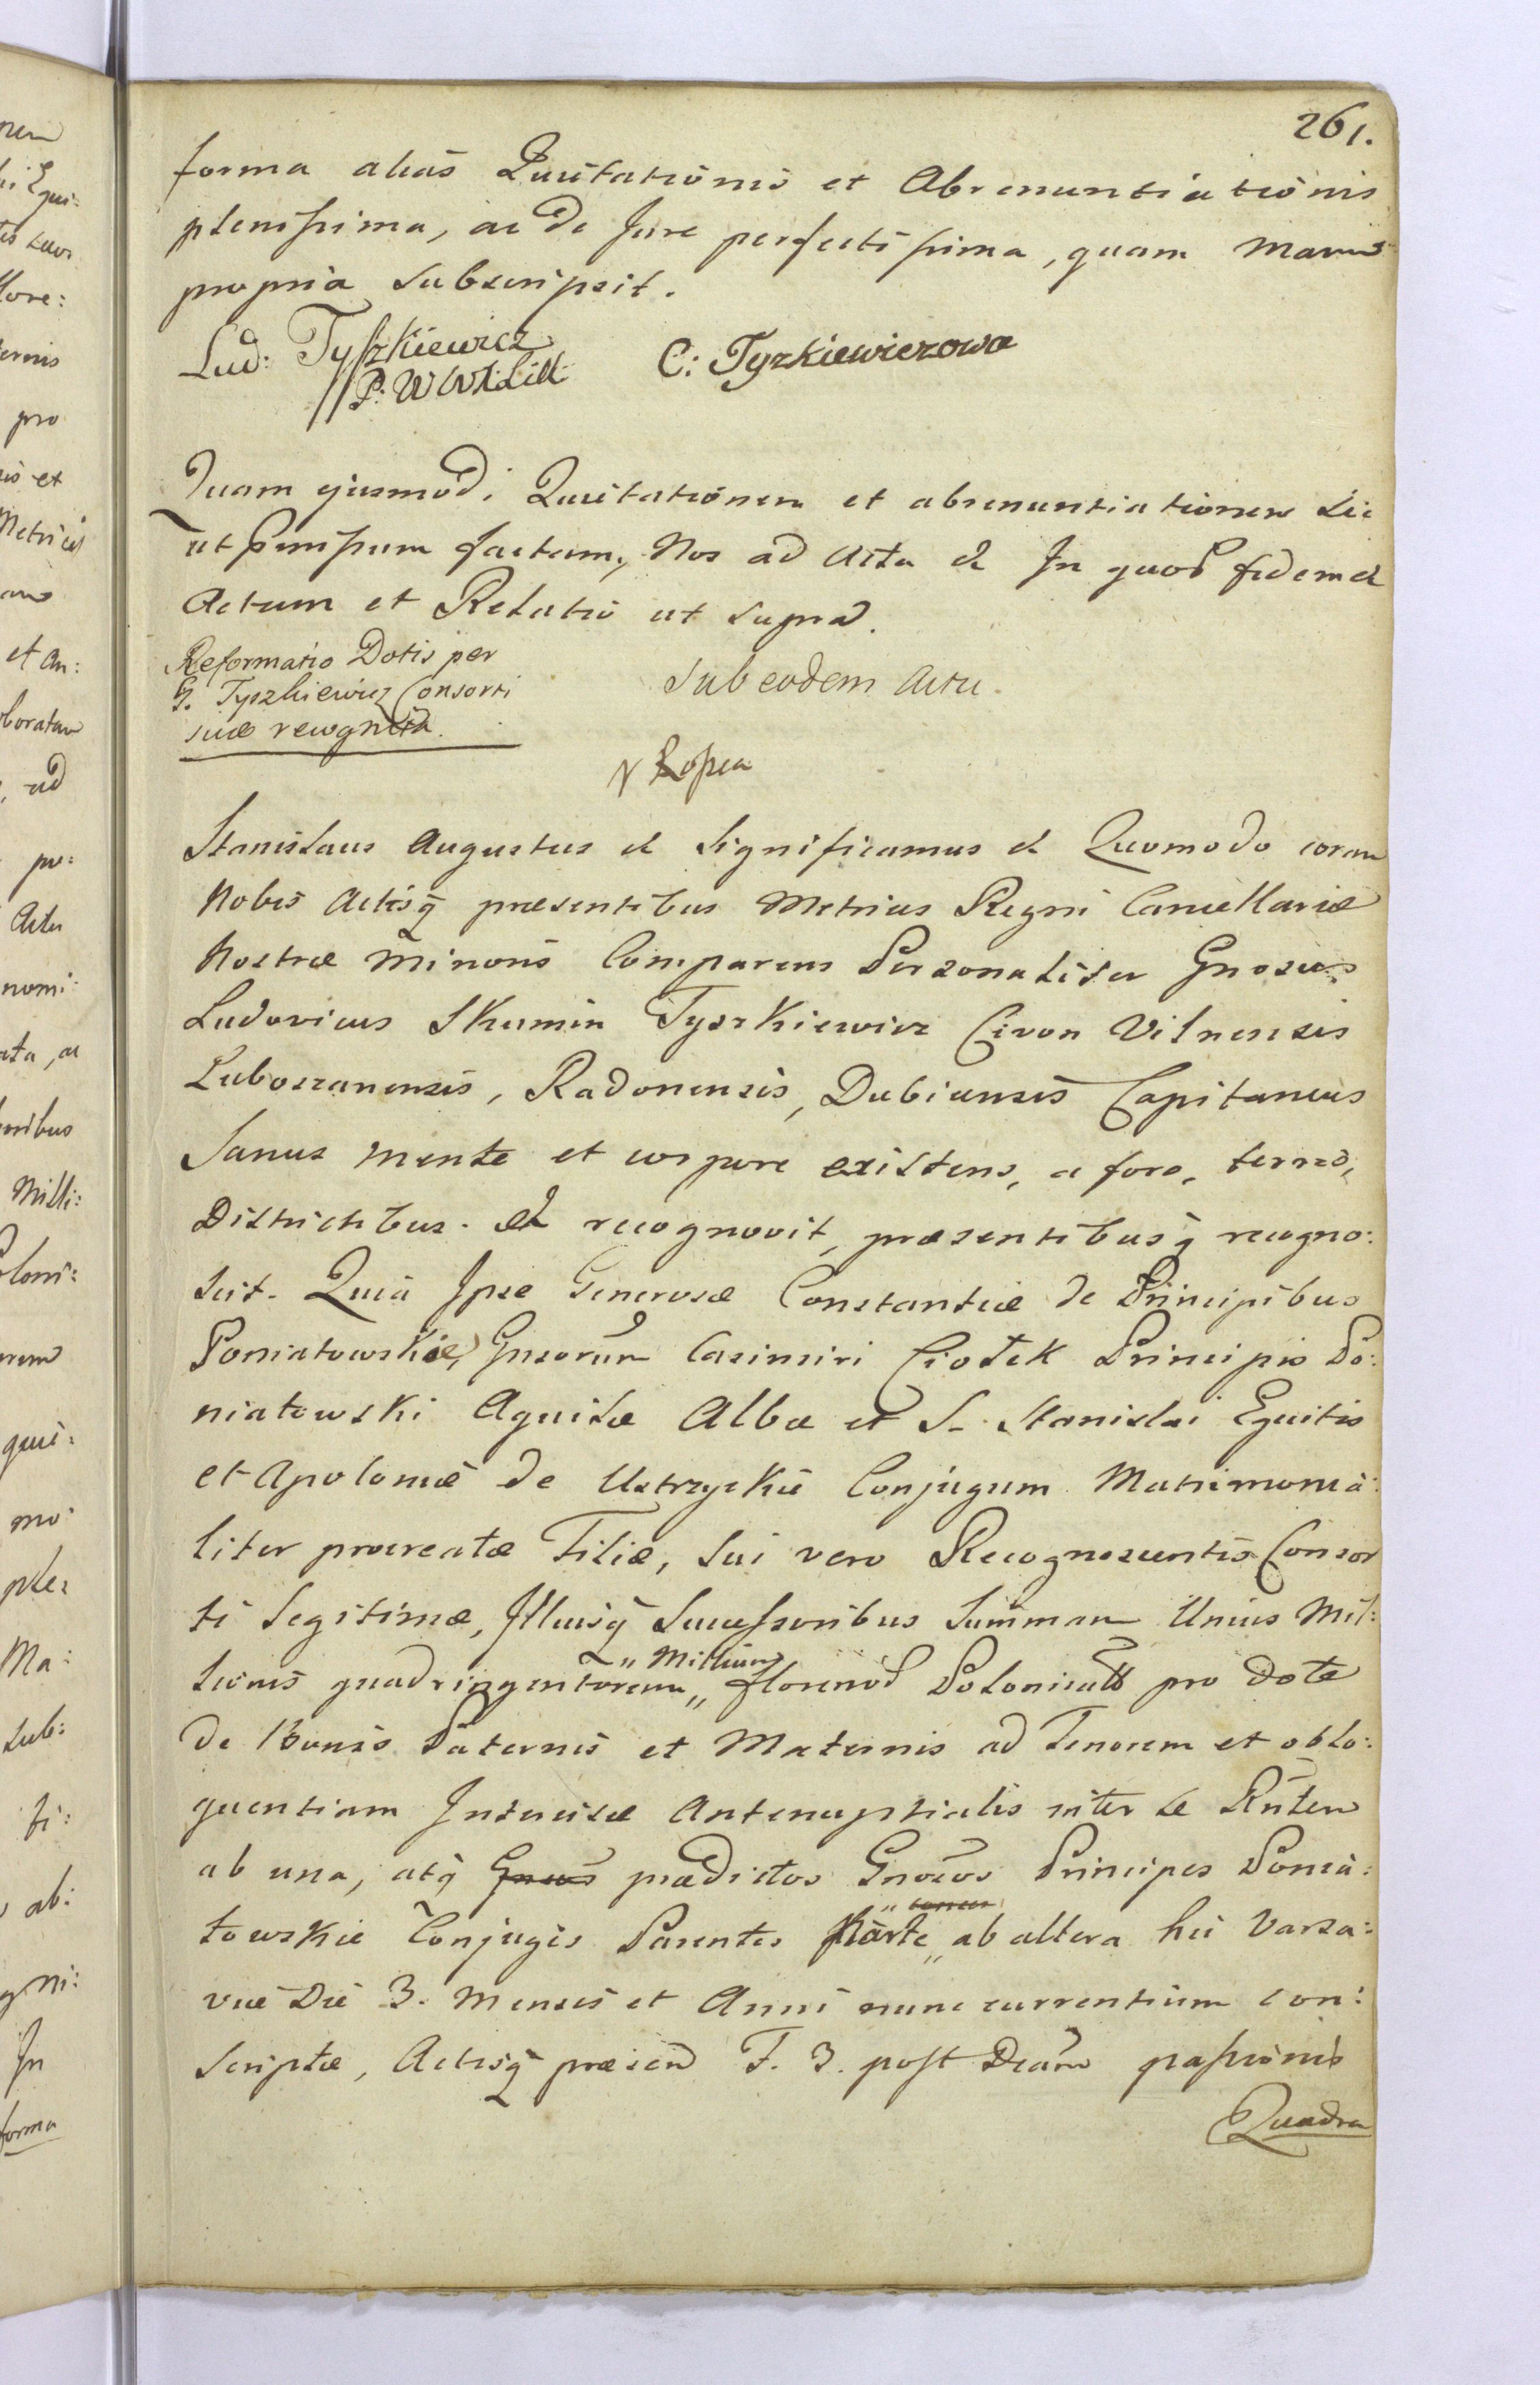 261.
forma alias Quietationis et Abrenuntiationis
plenissima, ac de Jure perfectissima, quam Manus
propria Subscripsit.
Lud: Tyszkiewicz C: Tyszkiewiczowa
P: W W X: Litt:
Quam ejusmodi Quietationem et abrenuntiationem Sic
ut praemissum factam, Nos ad Acta & In quor fidem &
Actum et Relatio ut Supra.
Reformatio Dotis per
G. Tyszkiewicz Consorti
suæ recognita.
Sub eodem Actu.
Stanislaus Augustus & Significamus & Quomodo coram
Nobis Actisq præsentibus Metrices Regni Cancellariæ
Nostræ Minoris Comparens Personaliter Gnosus
Ludovicus Skumin Tyszkiewicz Civon Vilnensis
Luboszanensis, Radonensis, Dubicensis Capitaneus
Sanus mente et corpore existens, a foro, terrað,
Districtibus. & recognovit, præsentibusq recogno:
scit. Quia Ipse Generosæ Constantiæ de Principibus
Poniatowskie, Gnsorum Casimiri Ciołek Principis Po:
niatowski Aquilæ Albæ et S. Stanislai Equitis
et Apoloniæ de Ustrzyckie Conjugum Matrimonia:
liter procreatæ Filiæ, Sui vero Recognoscentis Consor
ti Legitimæ, Illiusq Successoribus Summam Unius Mil:
lionis quadringentorum „ Millium „ florenor Polonicall pro dote
de Bonis Paternis et Maternis ad Tenorem et oblo:
quentiam Intercisæ Antenuptialis inter Se Rñtem
ab una, atq Gnsos prædictos Gnosos Principes Ponia:
towskie Conjuges Parentes Parte „ ab altera hic Varsa:
viæ Die 3. Mensis et Anni nunc currentium con:
scriptæ, Actisq præsen F. 3. post Dcam passionis
Quadra